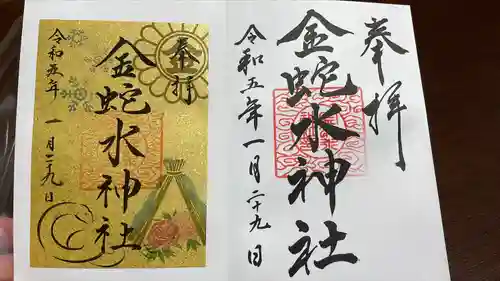 奉拝
金蛇水神社
令和五年一月二十九日
奉拝
金蛇水神社
令和五年
一月二十九日